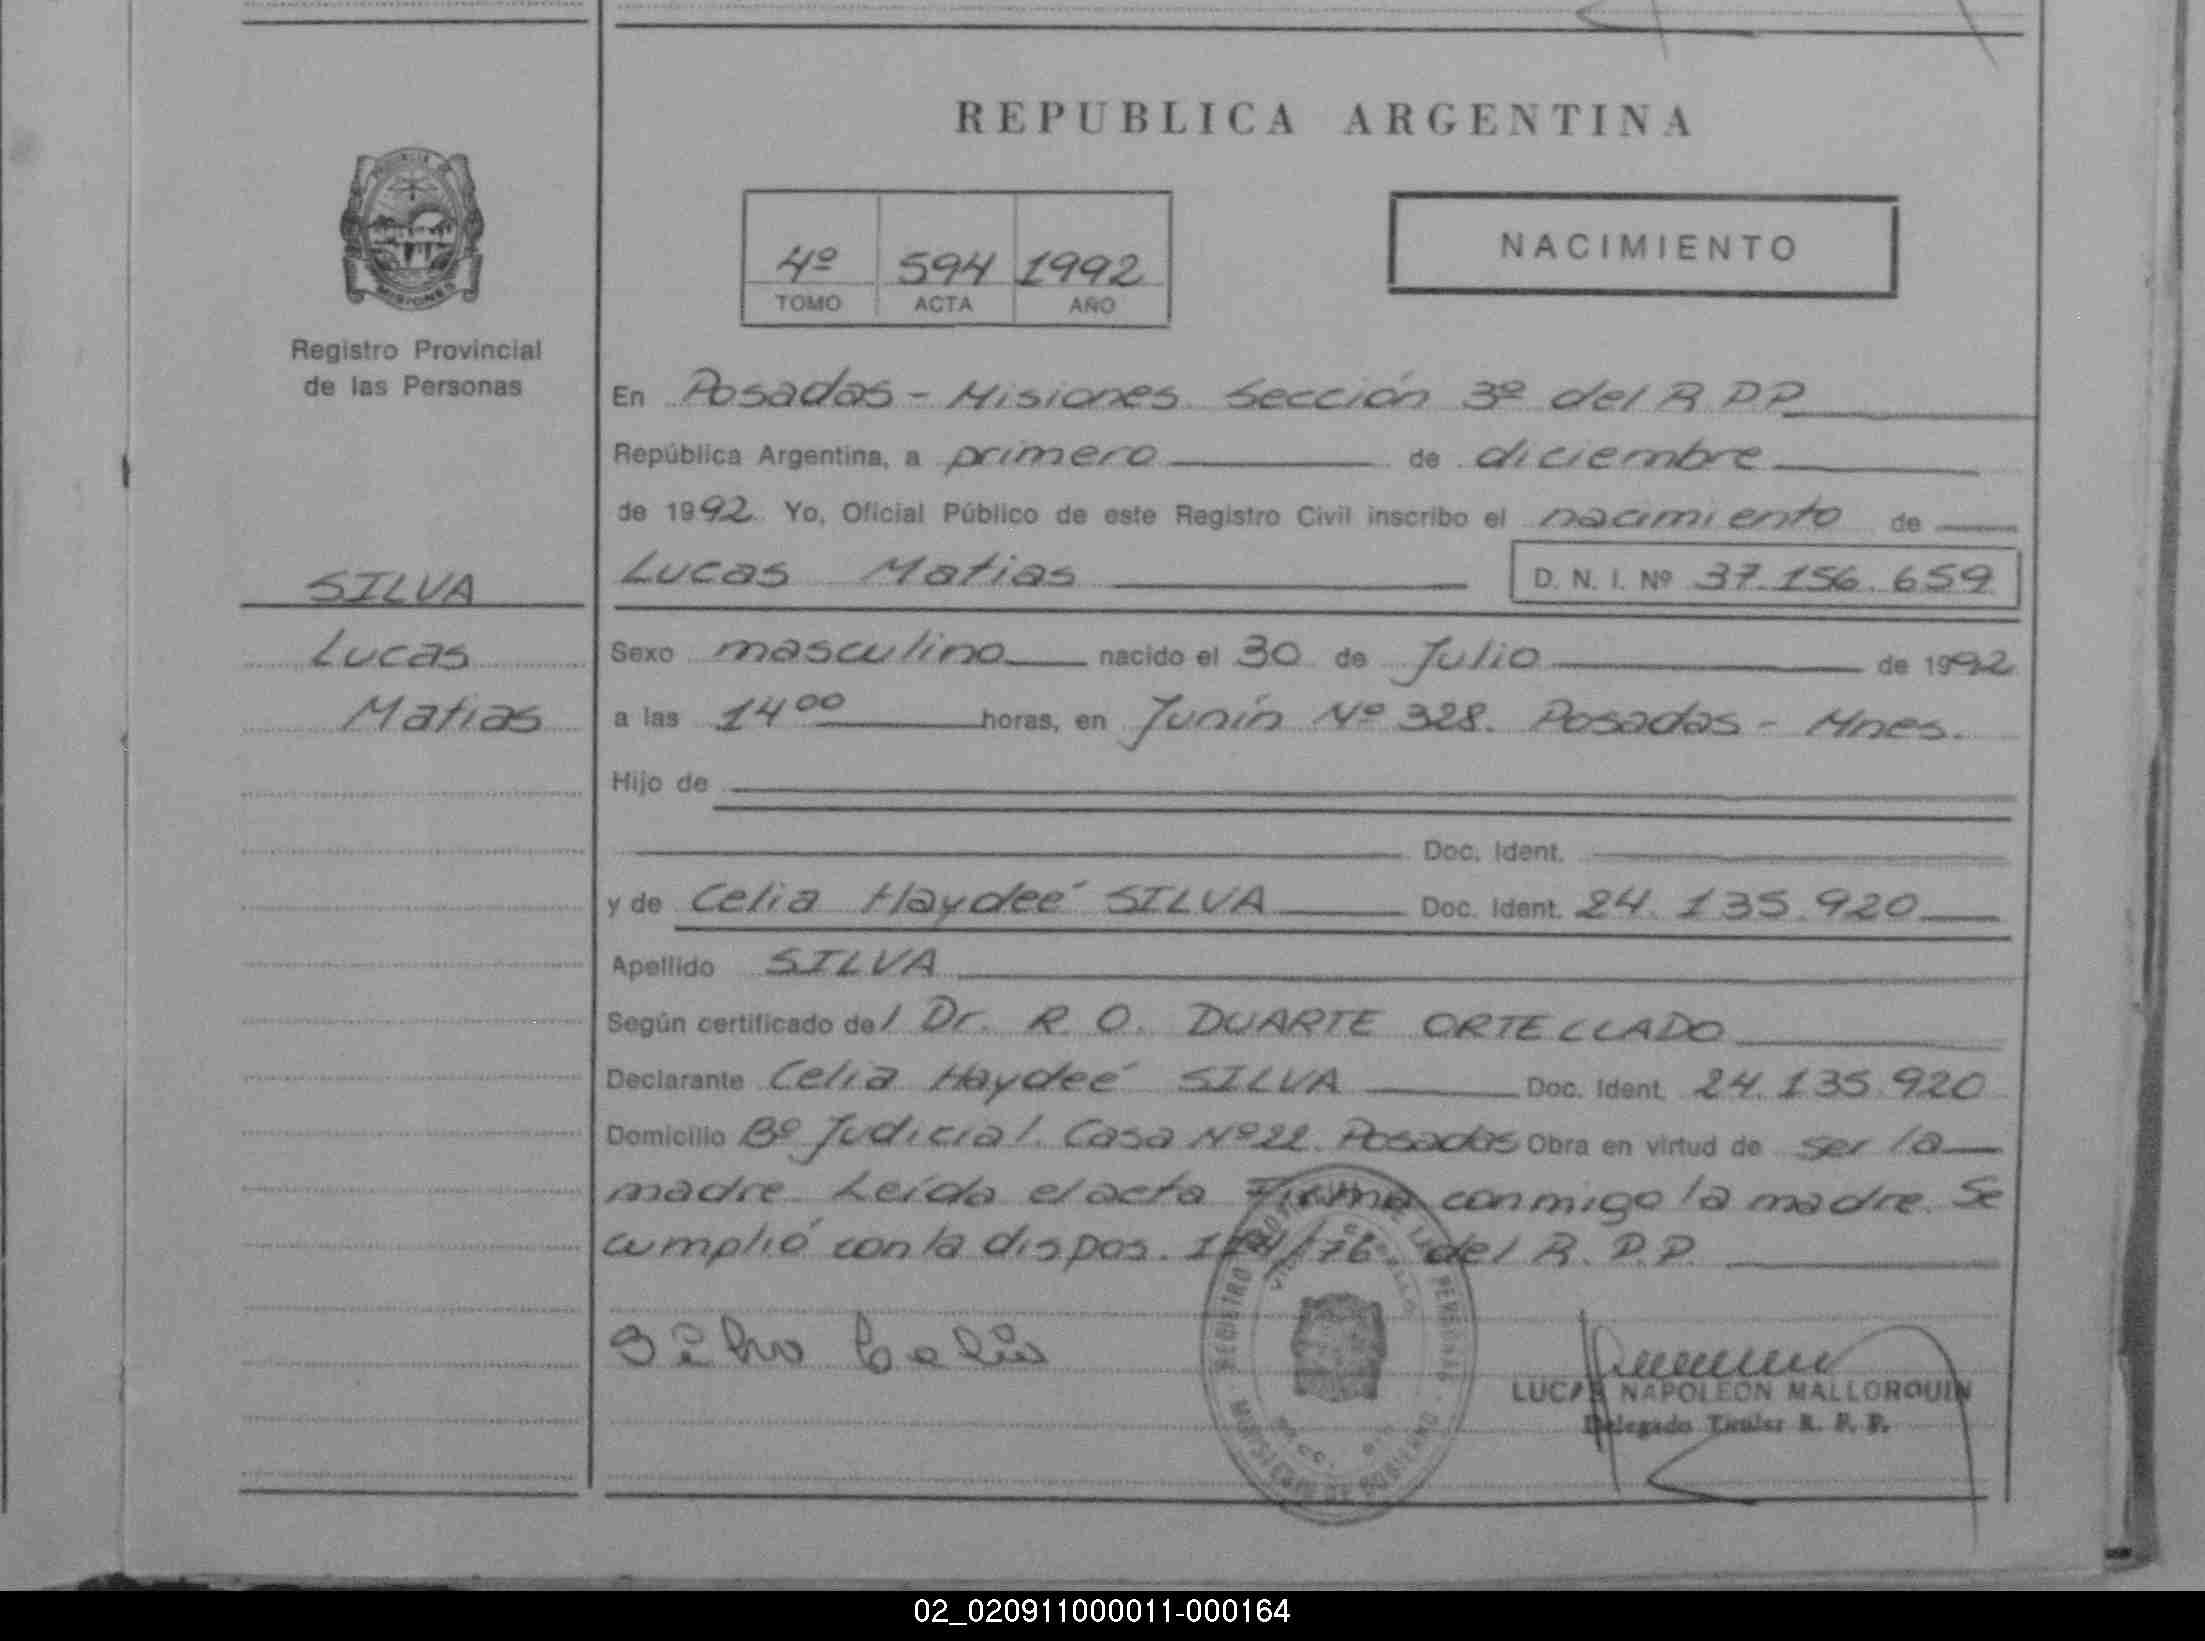 REPUBLICA ARGENTINA
MISIONES
Registro Provincial
de las Personas
4º 594 1992
TOMO ACTA AÑO
NACIMIENTO
SILVA
Lucas
Matias
En Posadas - Misiones. Sección 3º del R P P
República Argentina, a primero de diciembre
de 1992 Yo, Oficial Público de este Registro Civil inscribo el nacimiento de
Lucas Matias D. N. I. Nº 37.156.659
Sexo masculino nacido el 30 de Julio de 1992
a las 14 00 horas, en Junín Nº 328. Posadas - Mnes.
Hijo de
Doc. Ident.
y de Celia Haydeé SILVA Doc. Ident. 24.135.920
Apellido SILVA
Según certificado del Dr. R. O. DUARTE ORTELLADO
Declarante Celia Haydeé SILVA Doc. Ident. 24.135.920
Domicilio Bº Judicial. Casa Nº 22. Posadas Obra en virtud de ser la
madre. Leída el acta Firma conmigo la madre. Se
cumplió con la dispos. /76 del R. P. P.
Celia
LUCAS NAPOLEON MALLORQUIN
Delegado Titular R. P. P.
02_020911000011-000164